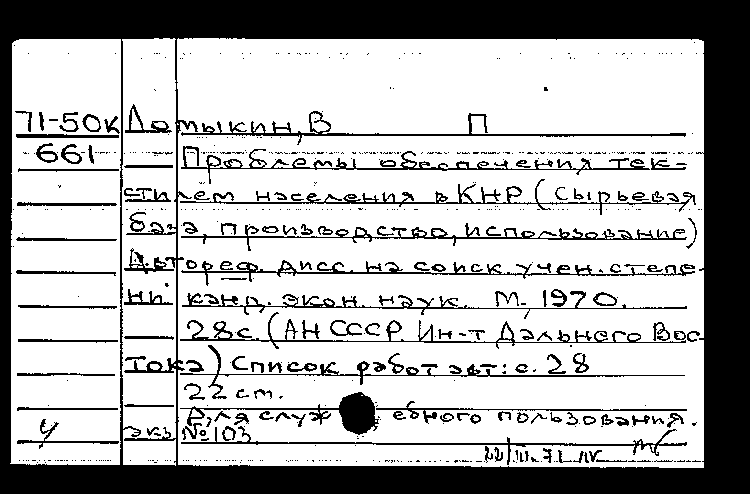 71-50к Ламыкин, В П
661 Проблемы обеспечения тек=
стилем населения в КНР (сырьевая
база, производство, использование)
Автореф. дисс. на соиск. учен. степе-
ни канд. экон. наук. М., 1970.
28с. (АН СССР. Ин-т Дальнего Вос-
тока) Список работ авт: с. 28
22 см.
Для служебного пользования.
У экз №103.
22/III-71